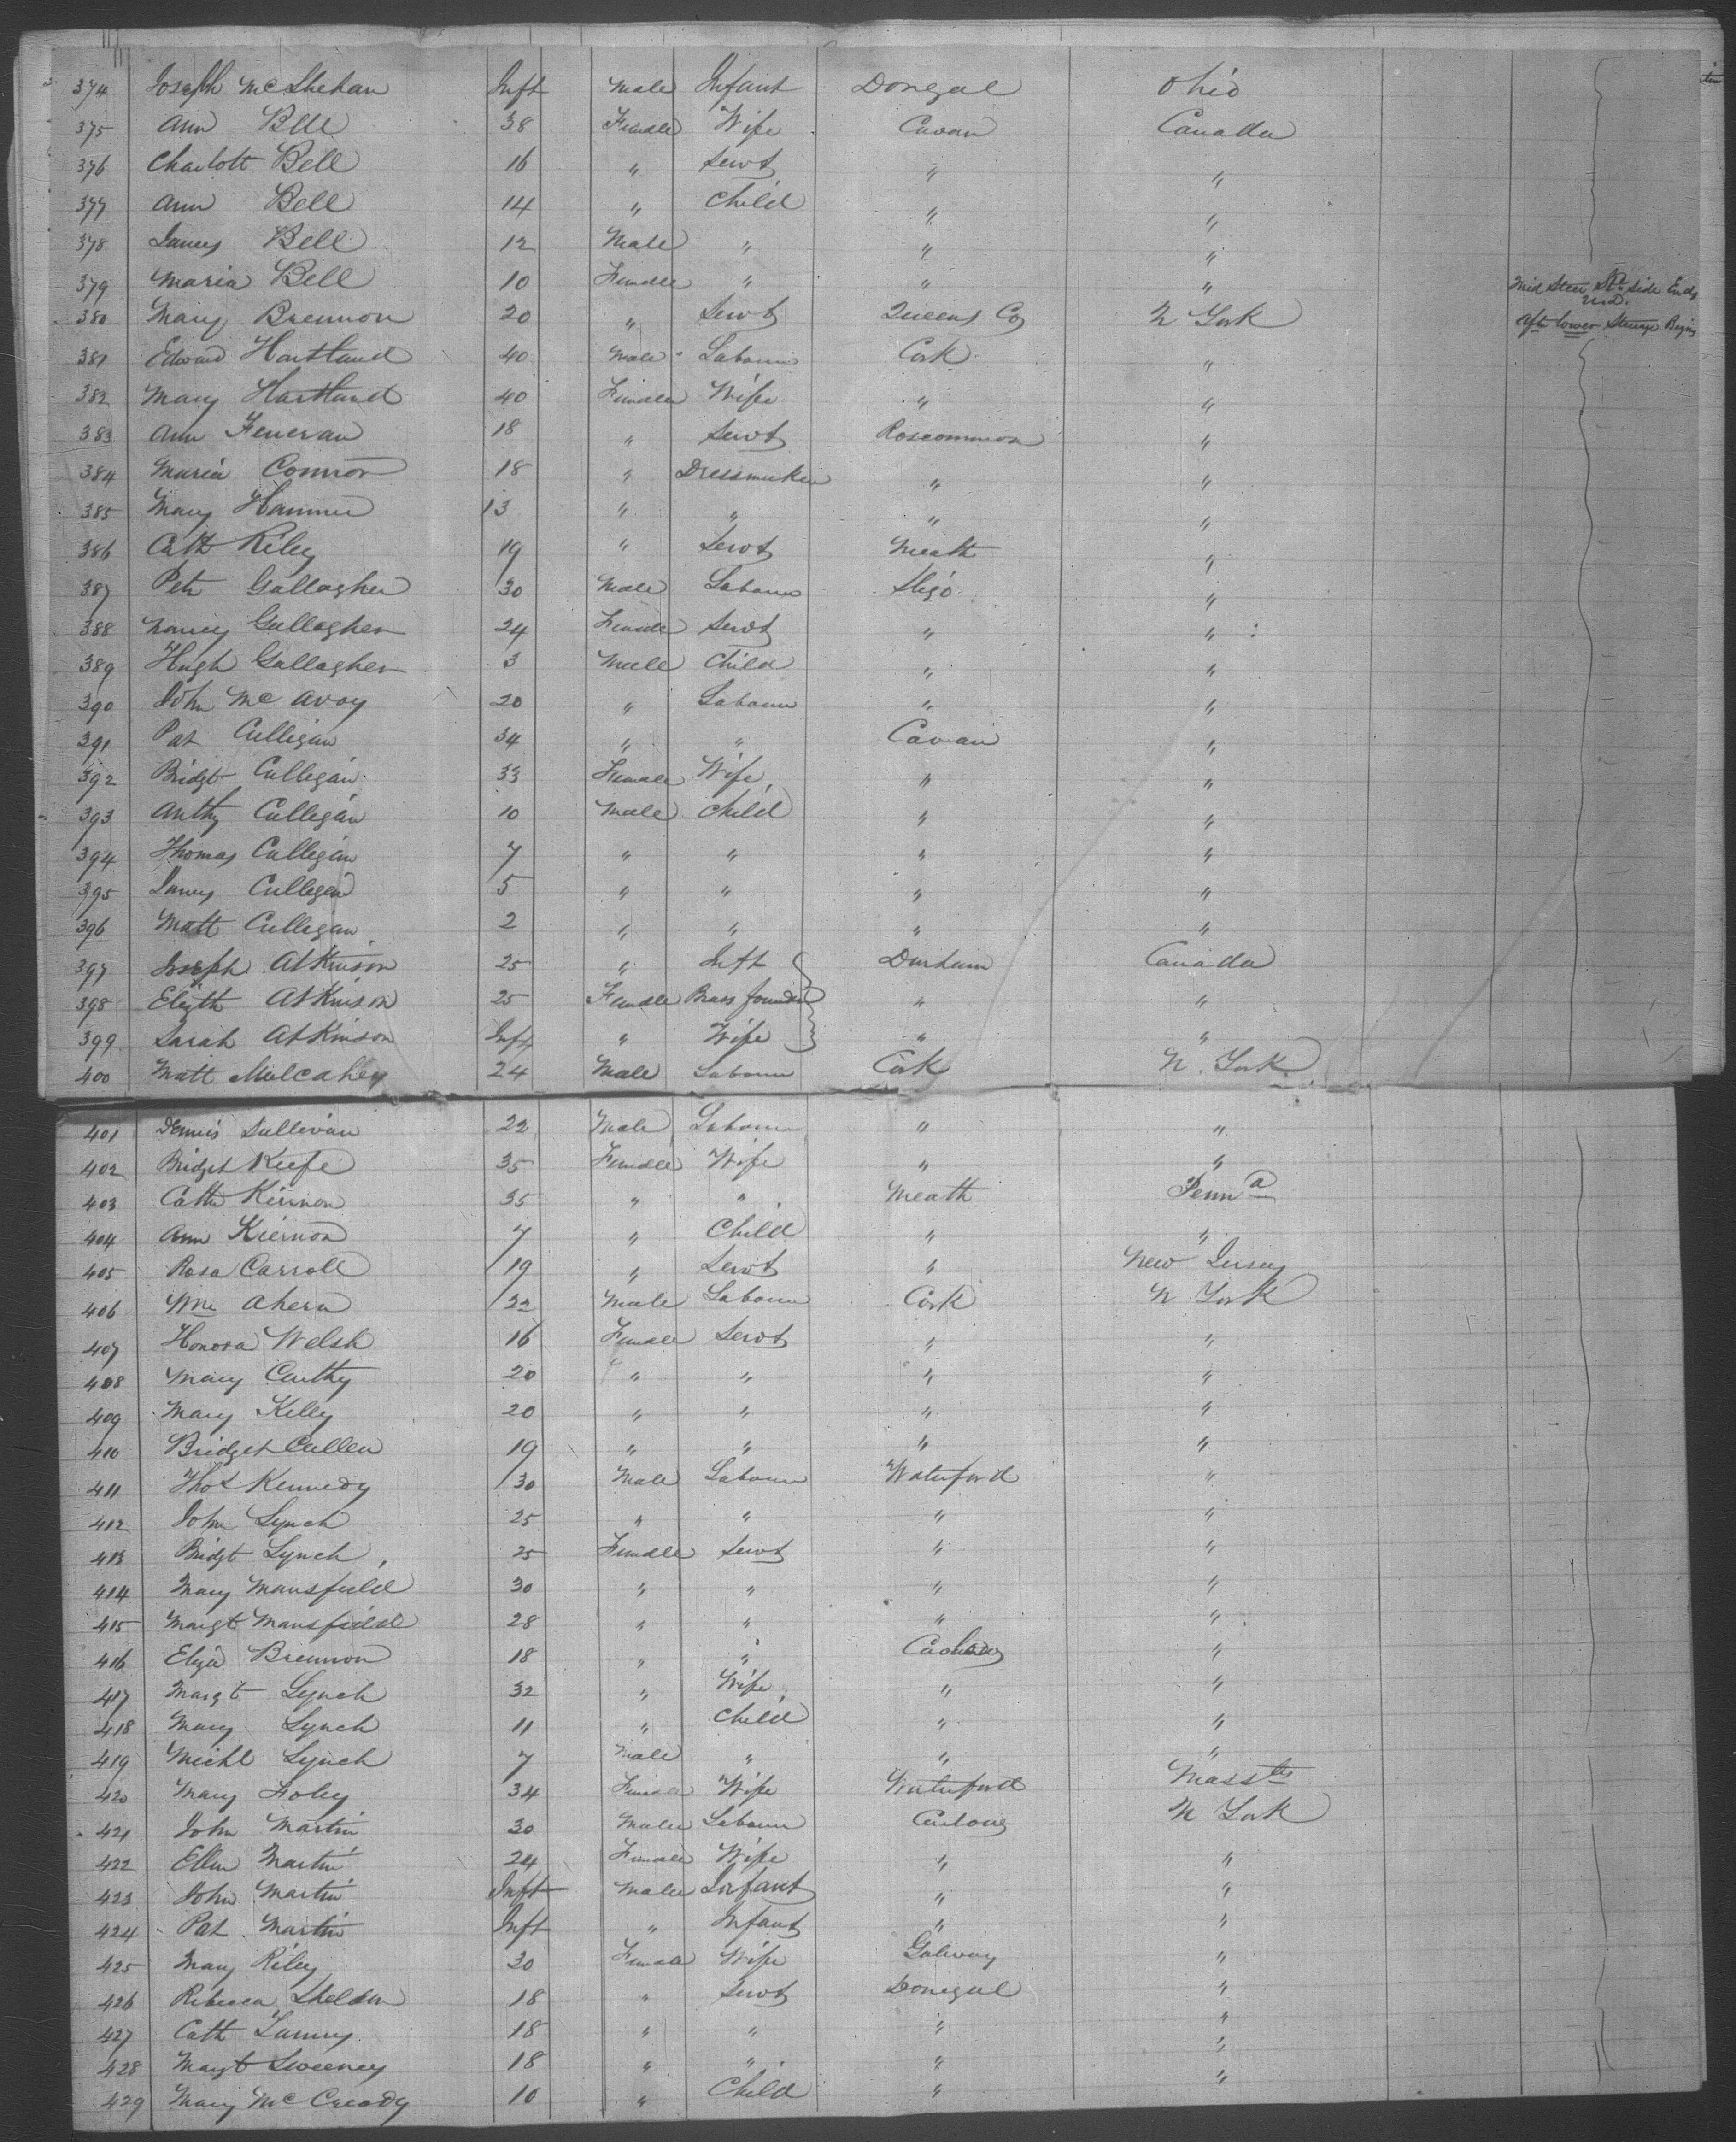 374 Joseph McShehan Inft Male Infant Donegal Ohio
375 Ann Bell 38 Female Wife Cavan Canada
376 Charlott Bell 16 " Servt " "
377 Ann Bell 14 " Child " "
378 James Bell 12 Male " " "
379 Maria Bell 10 Female " " " Mid Steer St. side Ends
380 Mary Brennon 20 " Servt Queens Co N York Aft lower Steerage Begins
381 Edward Hartland 40 Male Labourer Cork "
382 Mary Hartland 40 Female Wife " "
383 Ann Feneran 18 " Servt Roscommon "
384 Maria Connor 18 " Dressmaker " "
385 Mary 13 " " " "
386 Cath Riley 19 " Servt Meath "
387 Petr Gallagher 30 Male Labourer Sligo "
388 Nancy Gallagher 24 Female Servt " "
389 Hugh Gallagher 3 Male Child " "
390 John McAvoy 20 " Labourer " "
391 Pat Culligan 34 " " Cavan "
392 Bridgt Culligan 33 Female Wife " "
393 Anthy Culligan 10 Male Child " "
394 Thomas Culligan 7 " " " "
395 James Culligan 5 " " " "
396 Matt Culligan 2 " " " "
397 Joseph Atkinson 25 " Inft Durham Canada
398 Elizth Atkinson 25 Female Brass founder " "
399 Sarah Atkinson Inft " Wife " "
400 Matt Mulcahey 24 Male Labourer Cork N. York
401 Dennis Sullivan 22 Male Labourer " "
402 Bridget Keefe 35 Female Wife " "
403 Cath Kiernon 35 " " Meath Penna
404 Ann Kiernon 7 " Child " "
405 Rosa Carroll 19 " Servt " New Jersey
406 Wm Ahern 22 Male Labourer Cork N York
407 Honora Welsh 16 Female Servt " "
408 Mary Carthy 20 " " " "
409 Mary Kelly 20 " " " "
410 Bridget Cullen 19 " " " "
411 Thos Kennedy 30 Male Labourer Waterford "
412 John Lynch 25 " " " "
413 Bridgt Lynch 25 Female Servt " "
414 Mary Mansfield 30 " " " "
415 Margt Mansfield 28 " " " "
416 Eliza Brennon 18 " " "
417 Margt Lynch 32 " Wife " "
418 Mary Lynch 11 " Child " "
419 Michl Lynch 7 Male " " "
420 Mary Foley 34 Female Wife Waterford Massts
421 John Martin 30 Male Labourer Carlow N York
422 Ellen Martin 24 Female Wife " "
423 John Martin Inft Male Infant " "
424 Pat Martin Inft " Infant " "
425 Mary Riley 30 Female Wife Galway "
426 Rebecca Sheldon 18 " Servt Donegal "
427 Cath 18 " " " "
428 Margt Sweeney 18 " " " "
429 Mary McCready 10 " Child " "